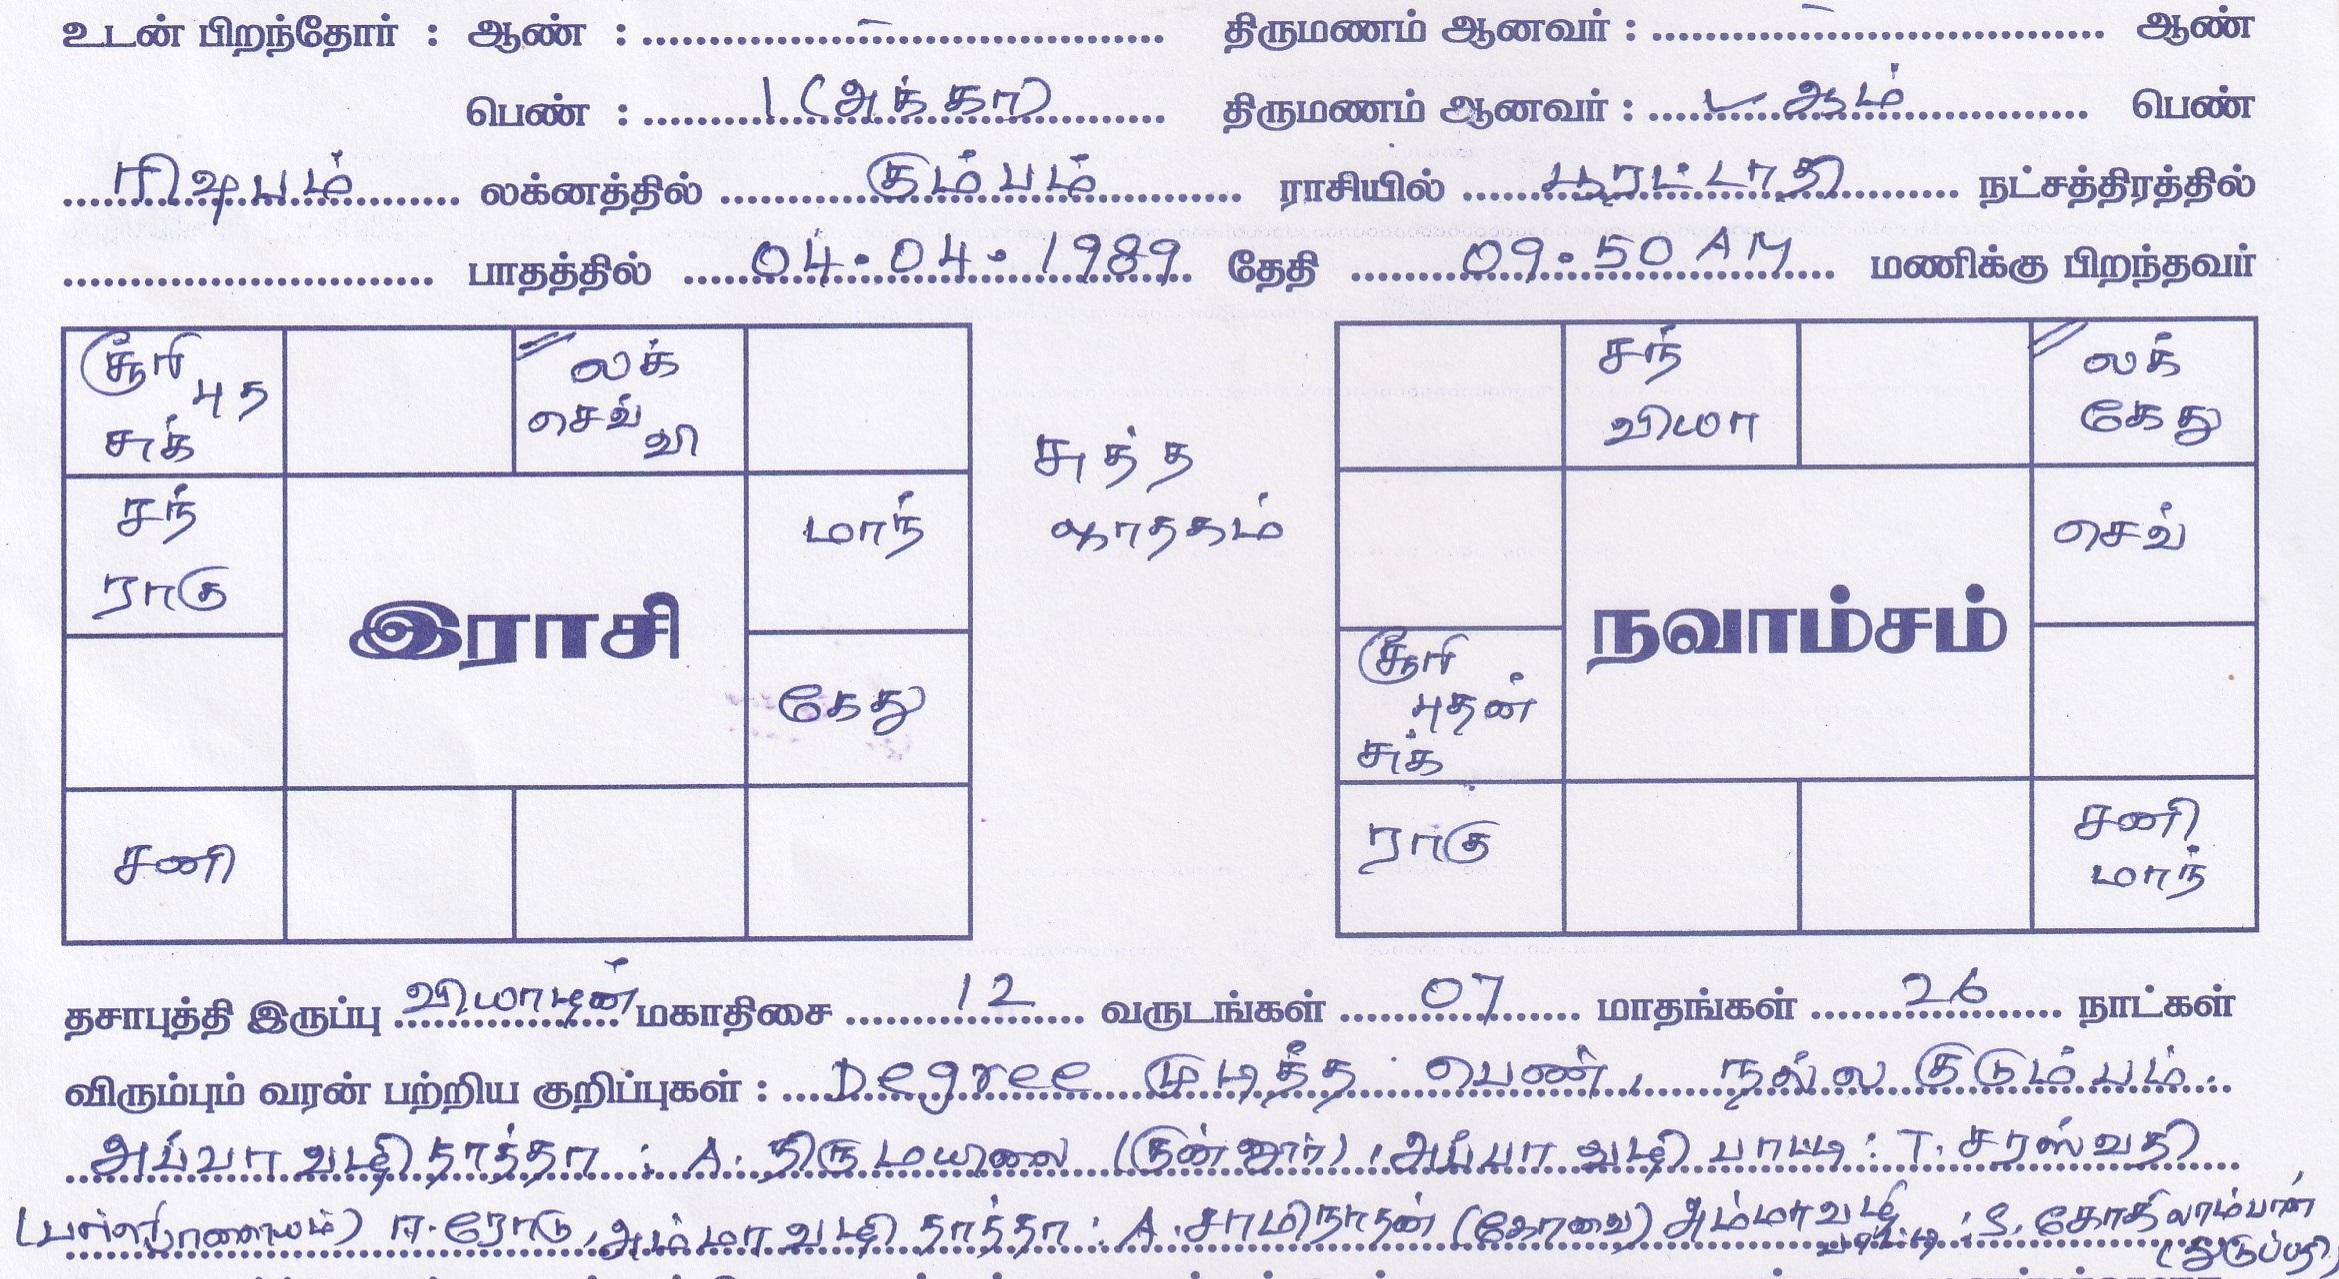 உடன் பிறந்தோர் : ஆண் : – திருமணம் ஆனவர் : – ஆண்
பெண் : 1 (அக்கா) திருமணம் ஆனவர் : ஆம் பெண்
ரிஷபம் லக்னத்தில் கும்பம் ராசியில் பூரட்டாதி நட்சத்திரத்தில்
பாதத்தில் 04.04.1989 தேதி 09.50 AM மணிக்கு பிறந்தவர்
சூரி
புத
சுக்
லக்
செவ்
வி
சந்
ராகு
மாந்
இராசி
கேது
சனி
சுத்த
ஜாதகம்
சந்
வியா
லக்
கேது
செவ்
நவாம்சம்
சூரி
புதன்
சுக்
ராகு
சனி
மாந்
தசாபுத்தி இருப்பு வியாழன் மகாதிசை 12 வருடங்கள் 07 மாதங்கள் 26 நாட்கள்
விரும்பும் வரன் பற்றிய குறிப்புகள் : Degree முடித்த பெண், நல்ல குடும்பம்.
அப்பா வழி தாத்தா : A. திருமயிலை (குன்னூர்), அப்பா வழி பாட்டி : T. சரஸ்வதி
ஈரோடு, அம்மா வழி தாத்தா : A. சாமிநாதன் (கோவை) அம்மா வழி பாட்டி : S.